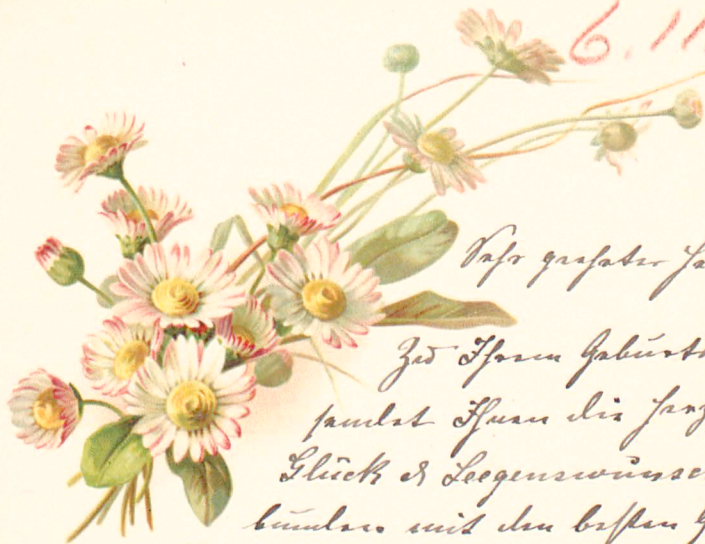 6. 11
Sehr geehrter He
Zu Ihrem Geburts
sendet Ihnen die herz
Glück & Seegenswünsc
bunden mit den besten G